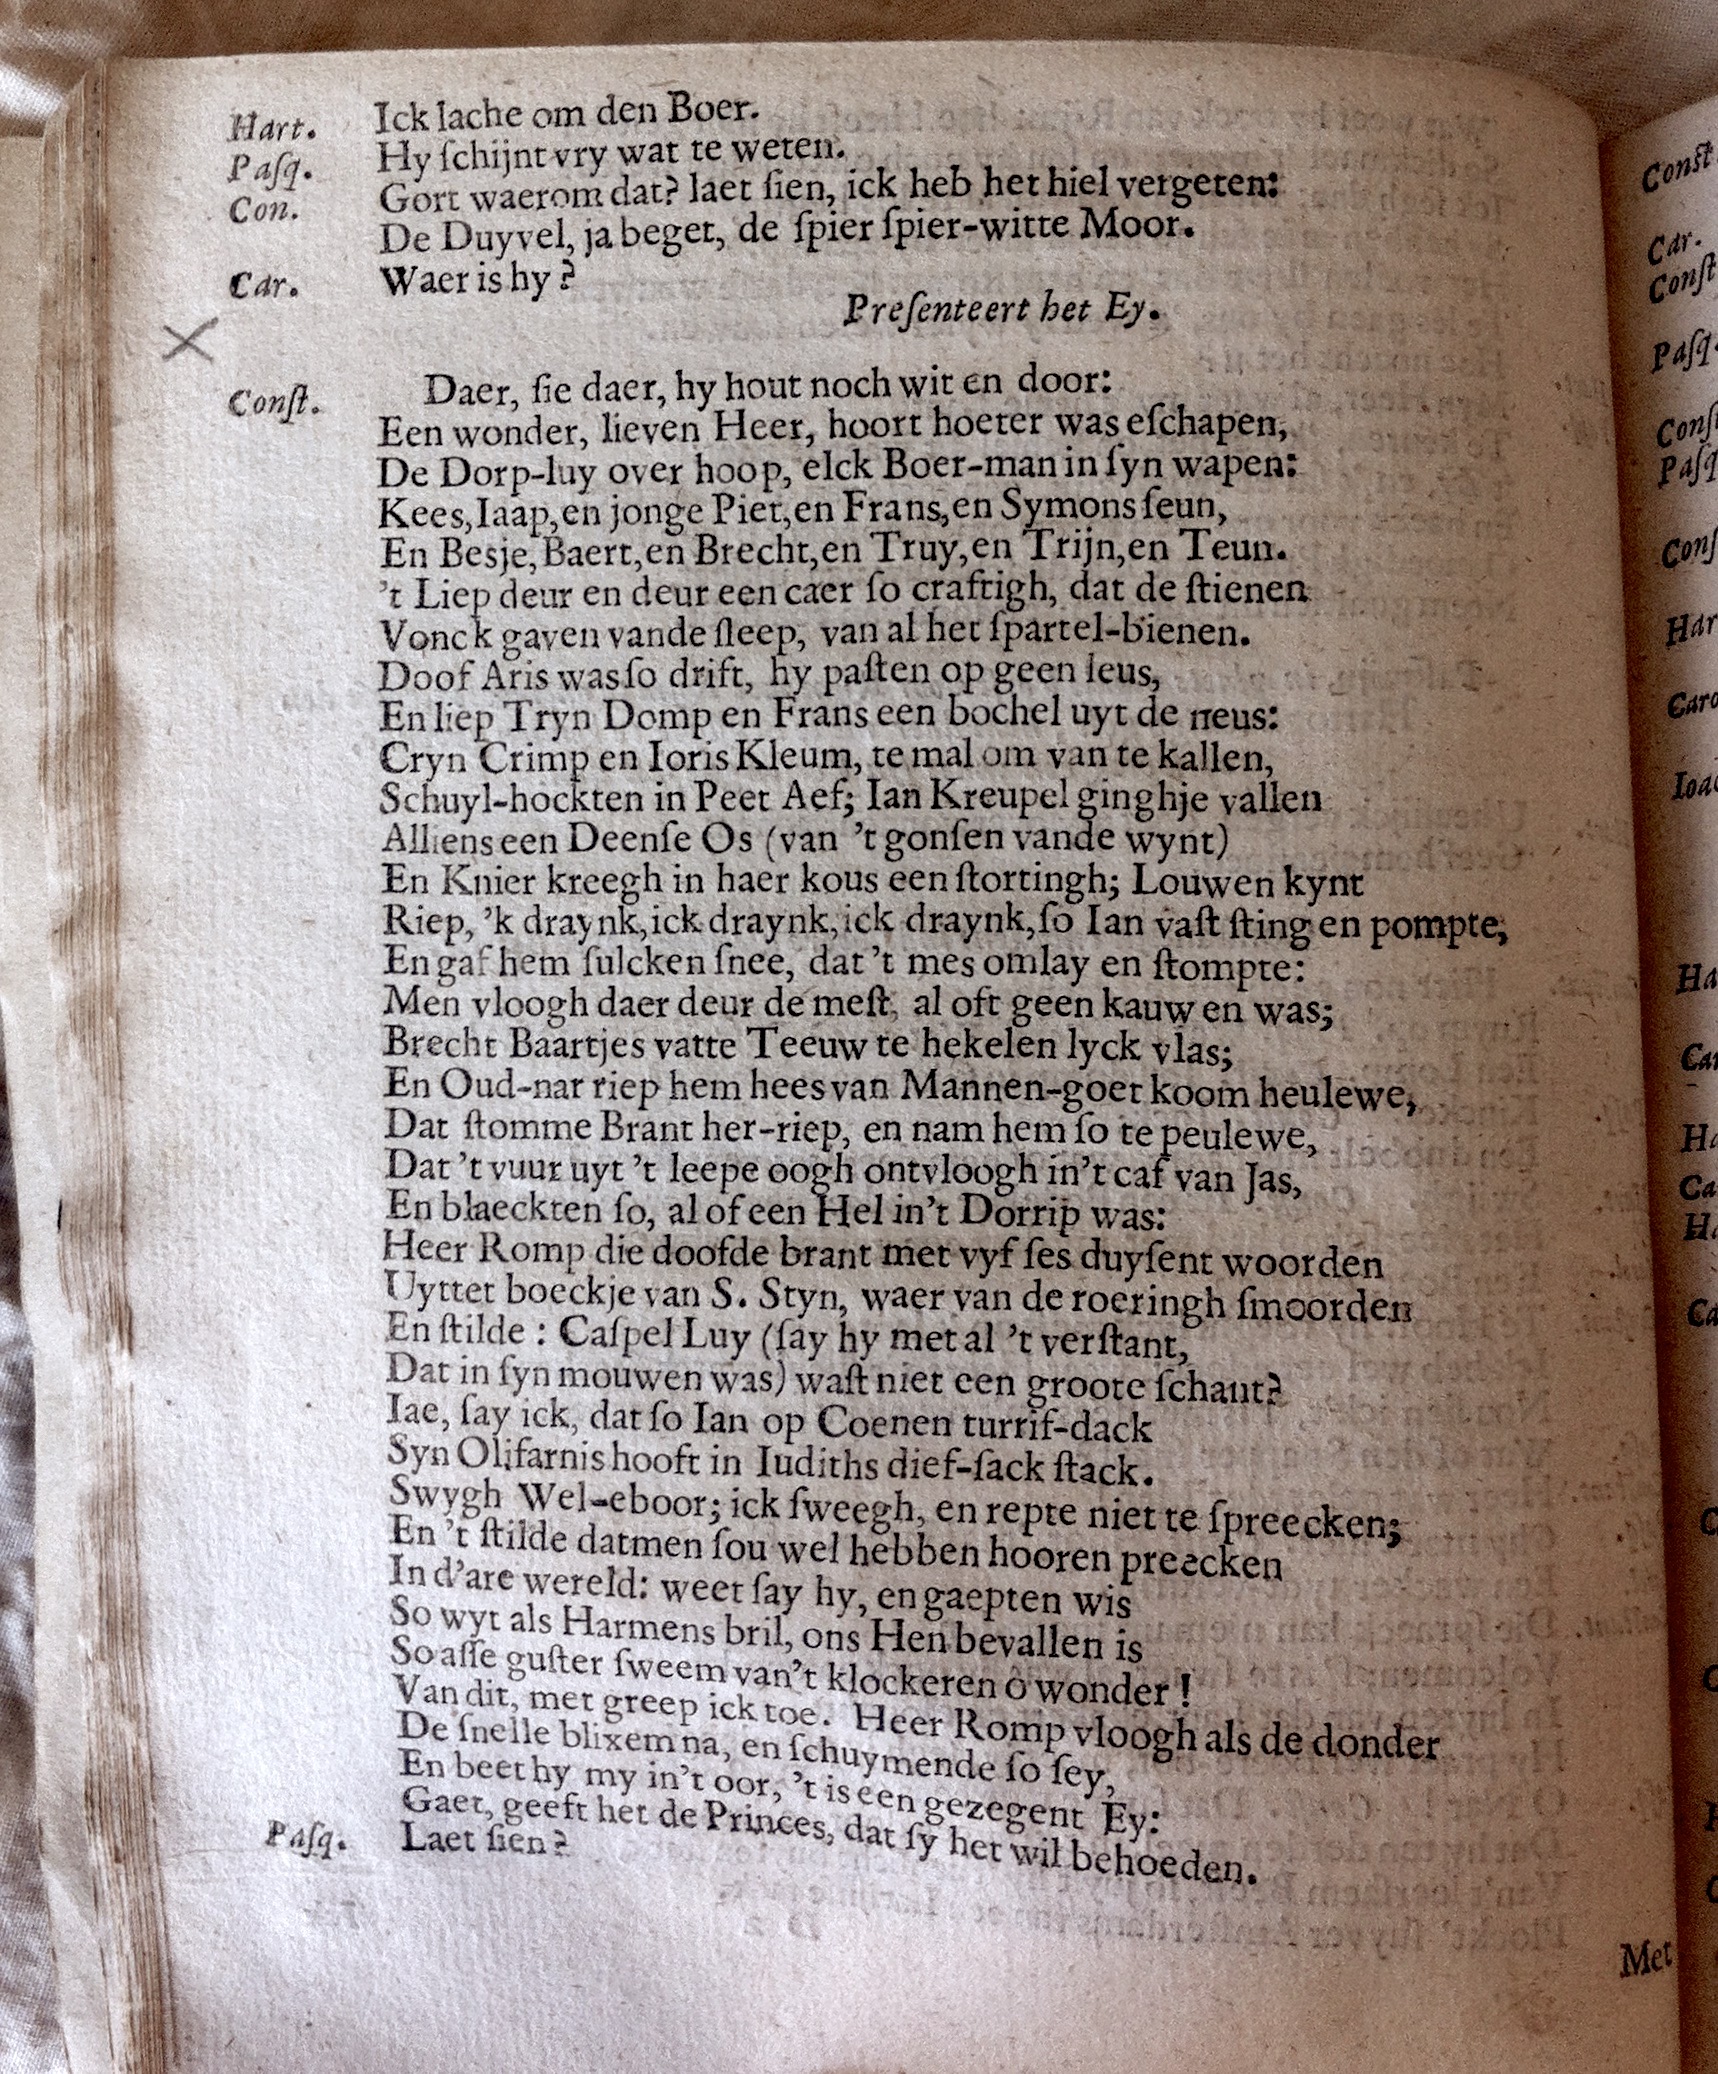 Hart. Ick lache om den Boer.
Paſq. Hy ſchijnt vry wat te weten.
Con. Gort waerom dat? laet ſien, ick heb het hiel vergeten:
De Duyvel, ja beget, de ſpier ſpier-witte Moor.
Car. Waer is hy?
Preſenteert het Ey.
Conſt. Daer, ſie daer, hy hout noch wit en door:
Een wonder, lieven Heer, hoort hoeter was eſchapen,
De Dorp-luy over hoop, elck Boer-man in ſyn wapen:
Kees, Iaap, en jonge Piet, en Frans, en Symons ſeun,
En Besje, Baert, en Brecht, en Truy, en Trijn, en Teun.
't Liep deur en deur een caer ſo craftigh, dat de ſtienen
Vonck gaven vande ſleep, van al het ſpartel-bienen.
Doof Aris was ſo drift, hy paſten op geen leus,
En liep Tryn Domp en Frans een bochel uyt de neus:
Cryn Crimp en Ioris Kleum, te mal om van te kallen,
Schuyl-hockten in Peet Aef; Ian Kreupel ginghje vallen
Alliens een Deenſe Os (van 't gonſen vande wynt)
En Knier kreegh in haer kous een ſtortingh; Louwen kynt
Riep, 'k draynk, ick draynk, ick draynk, ſo Ian vaſt ſting en pompte,
En gaf hem ſulcken ſnee, dat 't mes omlay en ſtompte:
Men vloogh daer deur de meſt, al oft geen kauw en was;
Brecht Baartjes vatte Teeuw te hekelen lyck vlas;
En Oud-nar riep hem hees van Mannen-goet koom heulewe,
Dat ſtomme Brant her-riep, en nam hem ſo te peulewe,
Dat 't vuur uyt 't leepe oogh ontvloogh in't caf van Jas,
En blaeckten ſo, al of een Hel in't Dorrip was:
Heer Romp die doofde brant met vyf ſes duyſent woorden
Uyttet boeckje van S. Styn, waer van de roeringh ſmoorden
En ſtilde : Caſpel Luy (ſay hy met al 't verſtant,
Dat in ſyn mouwen was) waſt niet een groote ſchant?
Iae, ſay ick, dat ſo Ian op Coenen turrif-dack
Syn Olifarnis hooft in Iudiths dief-ſack ſtack.
Swygh Wel-eboor; ick ſweegh, en repte niet te ſpreecken;
En 't ſtilde datmen ſou wel hebben hooren preecken
In d'are wereld: weet ſay hy, en gaepten wis
So wyt als Harmens bril, ons Hen bevallen is
So aſſe guſter ſweem van't klockeren ô wonder!
Van dit, met greep ick toe. Heer Romp vloogh als de donder
De ſnelle blixem na, en ſchuymende ſo ſey,
En beet hy my in't oor, 't is een gezegent Ey:
Gaet, geeft het de Princes, dat ſy het wil behoeden.
Paſq. Laet ſien?
Met
Conſt.
Car.
Conſt
Paſq.
Conſt
Paſq
Conſ
Har
Caro
Ioac
Ha
Car
Ha
Ca
Ha
Ca